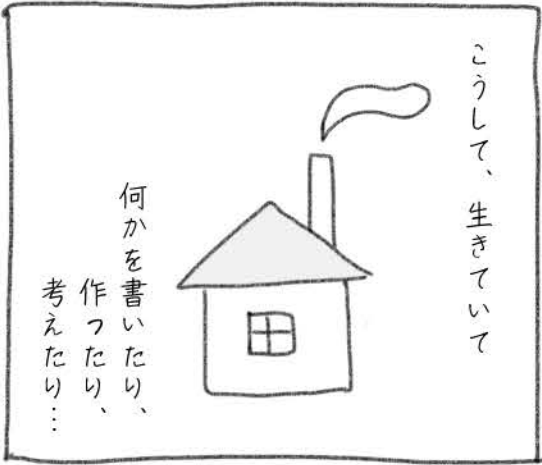 こうして、生きていて
何かを書いたり、
作ったり、
考えたり…